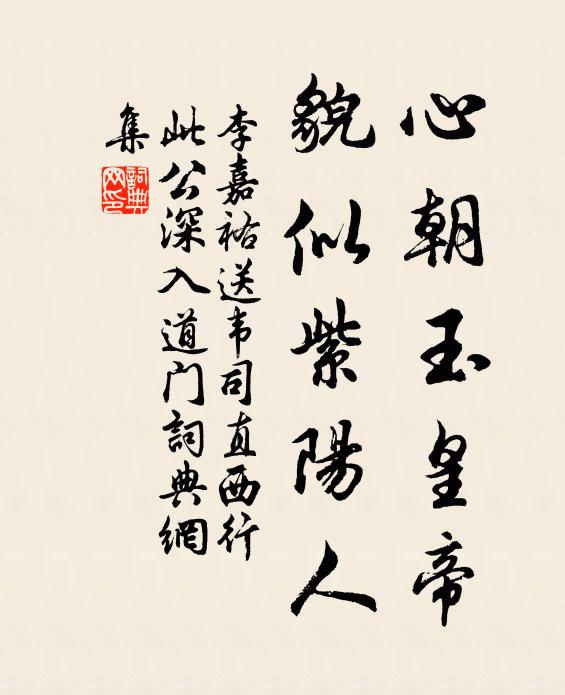 心朝玉皇帝
貌似紫陽人
李嘉祐送韦司直西行
此公深入道门詞典網
集
詞典
网印